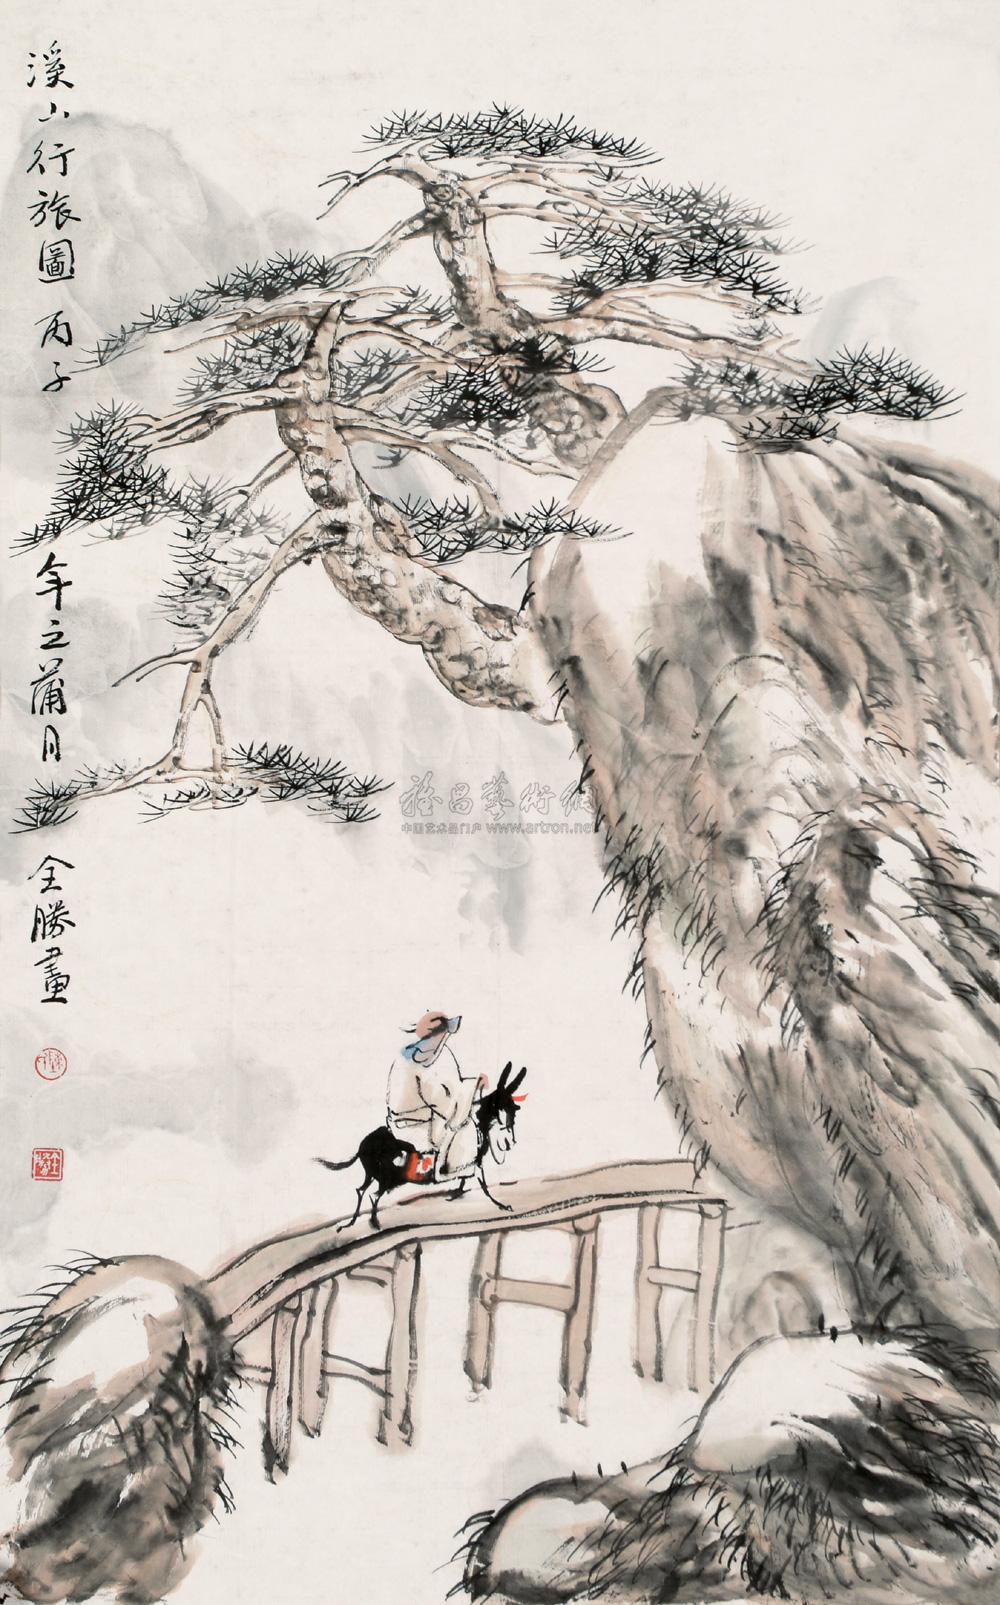 溪山行旅圖 丙子年之蒲月 全勝畫
中国艺术品门户 www.artron.net